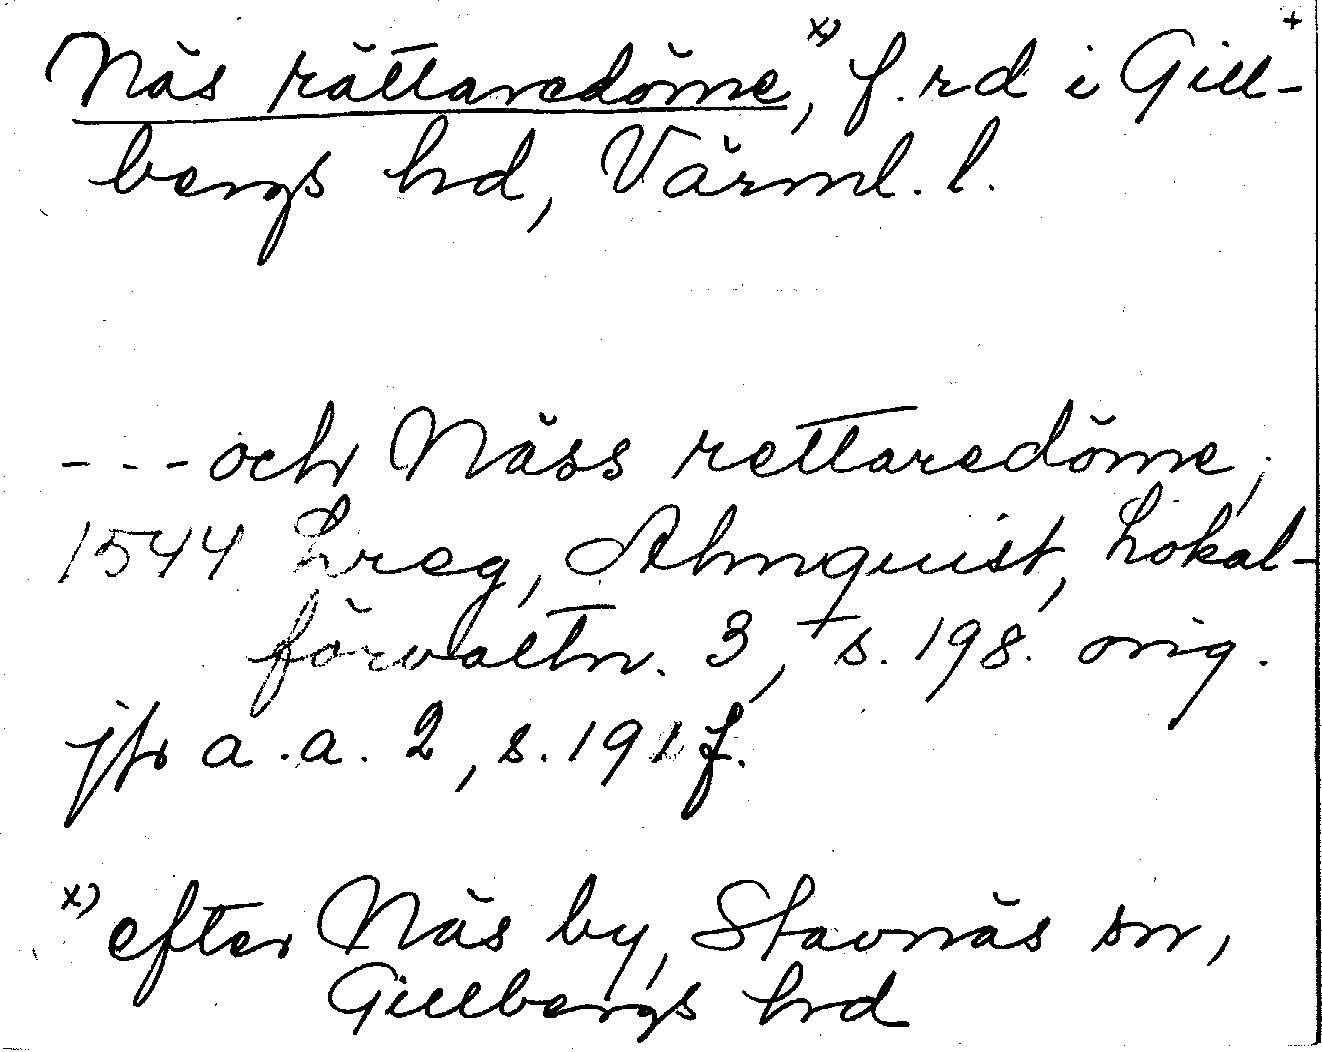 Näs rättaredöme,ˣ⁾ f.rd i Gill- +
bergs hrd, Värml. l.
- - - och Näss rettaredöme,
1544 Lreg, Almquist, Lokal-
förvaltn. 3, + s. 198. orig.
jfr a.a. 2, s. 191 f.
ˣ⁾ efter Näs by, Stavnäs sn,
Gillbergs hrd